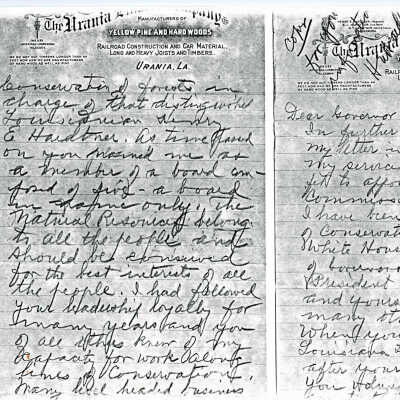 The Urania Company
MANUFACTURERS OF
YELLOW PINE AND HARD WOODS
RAILROAD CONSTRUCTION AND CAR MATERIAL.
LONG AND HEAVY JOISTS AND TIMBERS.
URANIA, LA
Conservation of forests in
charge of that distinguished
Louisianian Henry
E Hardtner. As time passed
on you named me as
a member of a board com-
posed of five - a board
in name only. The
Natural Resources belong
to all the people and
should be conserved
for the best interests of all
the people. I had followed
your leadership loyally for
many years and you
of all others knew of my
capacity for work along
lines of Conservation.
Many level headed business
Copy
The Urania
RAILROAD CO
LONG AND
Dear Governor
In further
my letter
my service
fit to
Commission
I have been
of Conserva
White Hous
of Governor
President
and yours
many oth
When you
Louisiana
after your
You